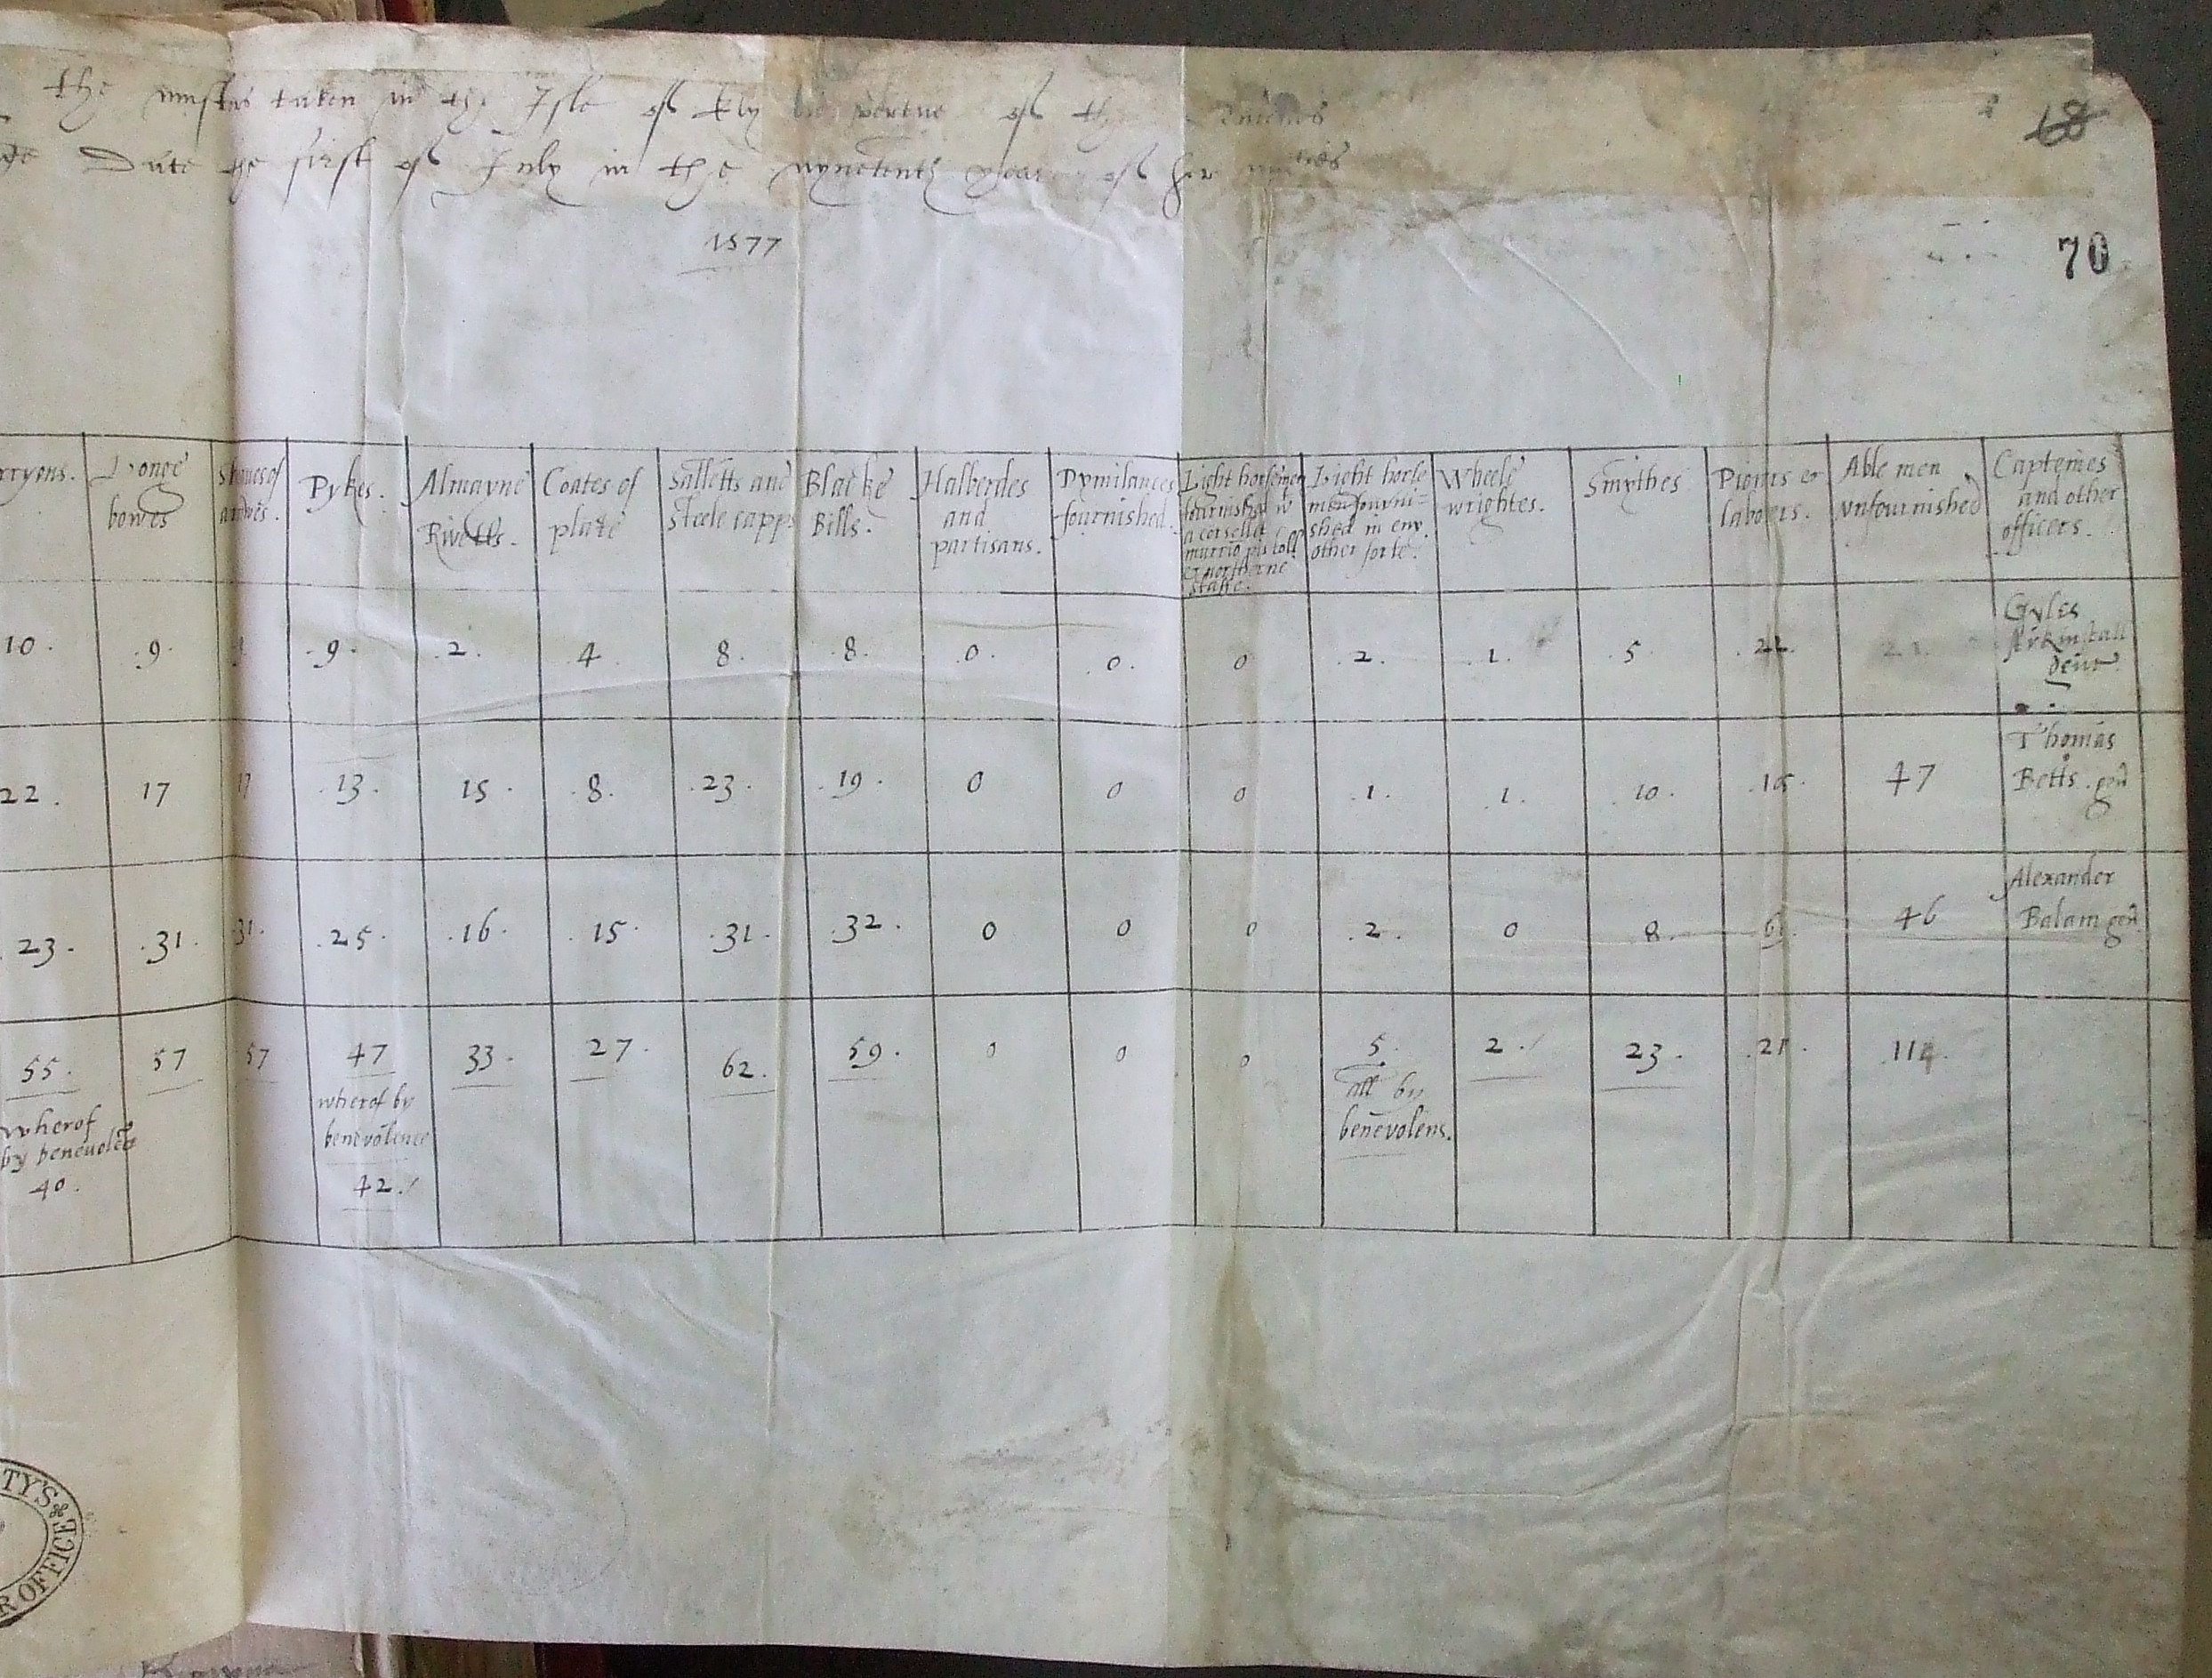 the musters taken in the Isle of Ely by vertue of the
Date the first of July in the nynetenth yeare of her
1577
68
70
rryons. Longe bowes Sheues of arrowes. Pykes. Almayne Rivetts. Coates of plate Salletts and steele capps Blacke Bills. Halberdes and partisans. Dymilances fournished. Light horsemen fournished w a corsellet murrio pistoll & northerne staffe. Light horse men fourni=shed in eny other sorte. Wheele wrightes. Smythes Pioners & laborers. Able men vnfournished Capteines and other officers.
10. .9. 9. .9. .2. .4. 8. .8. .0. 0. 0 .2. .1. .5. .22. 21. Gyles gent
22. 17 17 .13. 15. .8. .23. .19. 0 0 0 .1. .1. .10. Thomas Betts. gen
47
23. .31. .31. .25. .16. .15. .31. .32. 0 0 0 .2. 0 .8. 46 Alexander Balam gen
55. 57 57 47 33. 27. 62. 59. 0 0 0 5. 2. 23. .21. 114.
wherof by benevolēce 40.
wherof by benevolence 42.
all by benevolens.
TY'S
R OFFICE